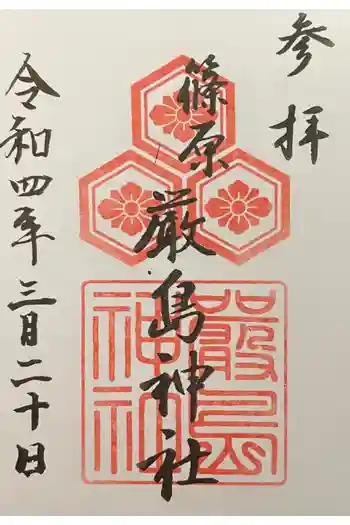 参拝
篠原
厳島神社
令和四年三月二十日
嚴島
神社